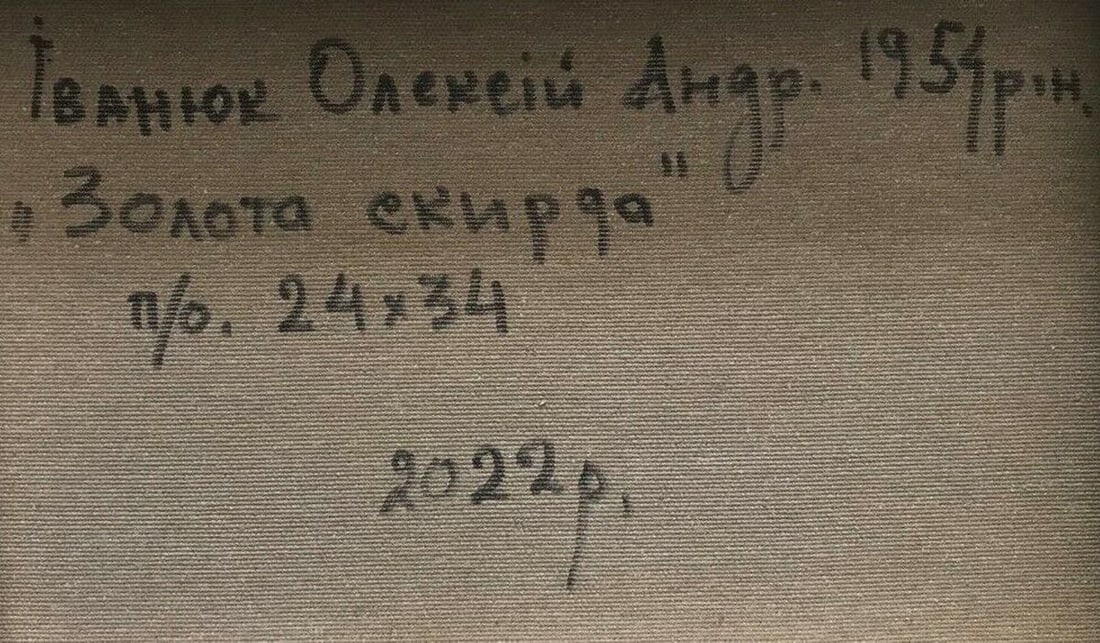 Іванюк Олексій Андр. 1954р.н.
„Золота скирда"
п/о. 24х34
2022р.